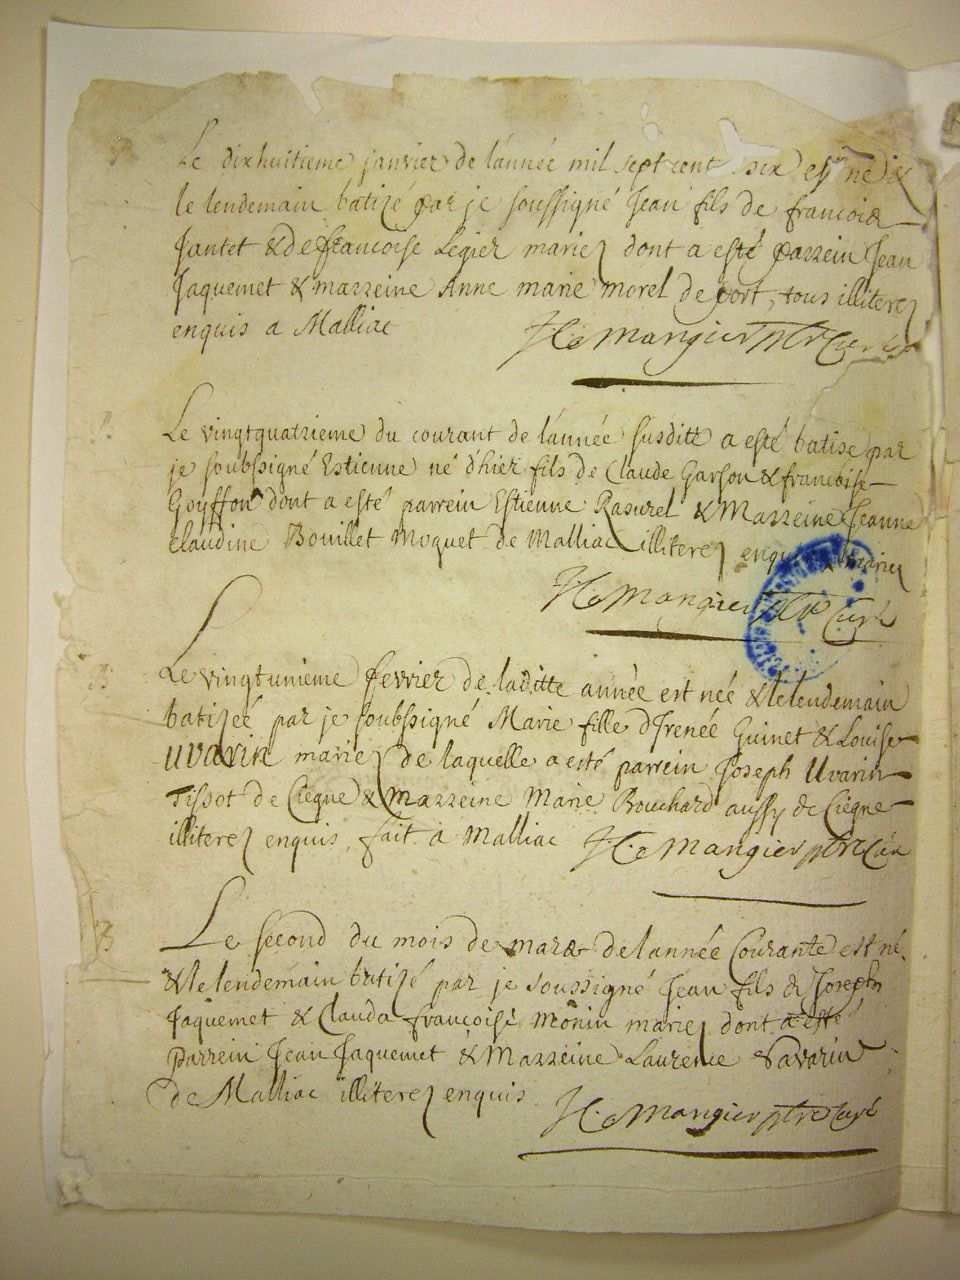 Le dixhuitieme janvier de lánnée mil sept cent six est né &
le lendemain batizé par je soussigné Jean fils de francois
Jantet & de francoise Legier mariez dont a esté parrein Jean
Jaquemet & marreine Anne marie morel de port, tous illiterez
enquis a Malliac
H. Mangier ptre Curé
Le vingtquatrieme du courant de lánnée susditte a esté batise par
je soubssigné Estienne né d'hier fils de Claude Garson & francoise
Goyffon dont a esté parrein Estienne Rasurel & Marreine Jeanne
claudine Bouillet Moquet de Malliac illiterez enquis
H. Mangier ptre Curé
Le vingtunieme fevrier de laditte année est neé & le lendemain
batizeé par je soubssigné Marie fille d'Irenée Guinet & Louise
Uvarin mariez de laquelle a esté parrein Joseph Uvarin
Tissot de Ciegne & Marreine Marie Bouchard aussy de Ciegne
illiterez enquis, fait a Malliac
H. Mangier ptre Curé
Le second du mois de mars de lannée Courante est né
& le lendemain batizé par je soussigné Jean fils de Joseph
Jaquemet & Clauda francoise Monin mariez dont a esté
parrein Jean Jaquemet & Marreine Laurence Vavarin
de Malliac illiterez enquis
H. Mangier ptre Curé